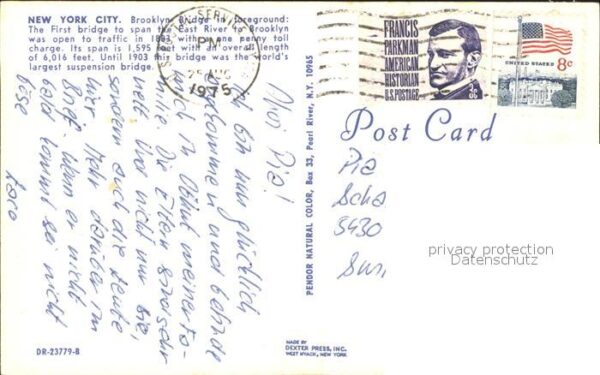 NEW YORK CITY. Brooklyn Bridge in foreground:
The First bridge to span the East River to Brooklyn
was open to traffic in 1883 with a one penny toll
charge. Its span is 1,595 feet with an overall length
of 6,016 feet. Until 1903 this bridge was the world's
largest suspension bridge.
SERVICE
PM
25 AUG
1975
FRANCIS
PARKMAN
AMERICAN
HISTORIAN
U.S. POSTAGE
3c
UNITED STATES
8c
Post Card
Pia
Scha
5430
privacy protection
Datenschutz
PENDOR NATURAL COLOR, Box 33, Pearl River, N.Y. 10965
Pia!
ich bin nun glücklich
angekommen und befinde
mich in Obhut meiner Fa-
milie. Die Eltern sind sehr
nett und nicht nur sie,
sondern auch die Leute
hier. Mehr darüber im
Brief. Wenn er nicht
bald kommt sei nicht
böse
DR-23779-B
MADE BY
DEXTER PRESS, INC.
WEST NYACK, NEW YORK